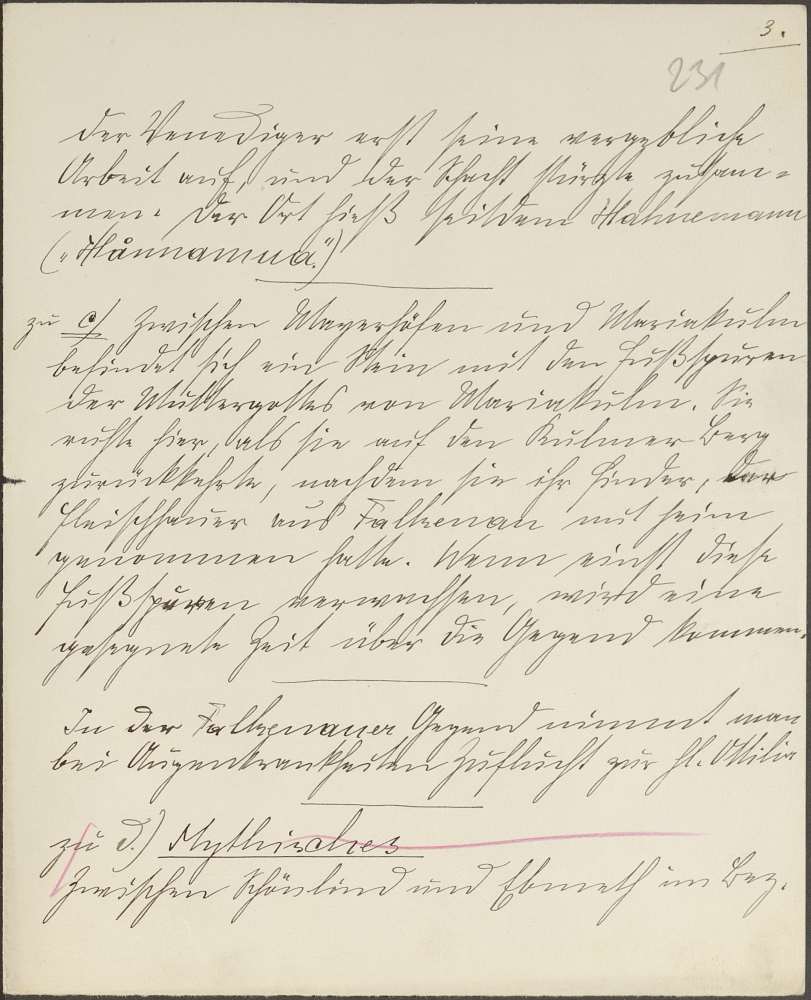 3.
231
der Venediger erst seine vergebliche
Arbeit auf, und der Schacht stürzte zusam-
men. Der Ort hieß seitdem Hahnemann
("Hånnamua.")
zu c) Zwischen Mayerhöfen und Mariakulm
befindet sich ein Stein mit den Fußspuren
der Muttergottes von Mariakulm. Sie
ruhte hier, als sie auf den Kulmer Berg
zurückkehrte, nachdem sie ihr Finder, der
Fleischhauer aus Falkenau mit heim
genommen hatte. Wenn einst diese
Fußspuren verwachsen, wird eine
gesegnete Zeit über die Gegend kommen.
In der Falkenauer Gegend nimmt man
bei Augenkrankheiten Zuflucht zur hl. Ottilia
zu d.) Mythisches
Zwischen Schönlind und Ebmeth im Bez.